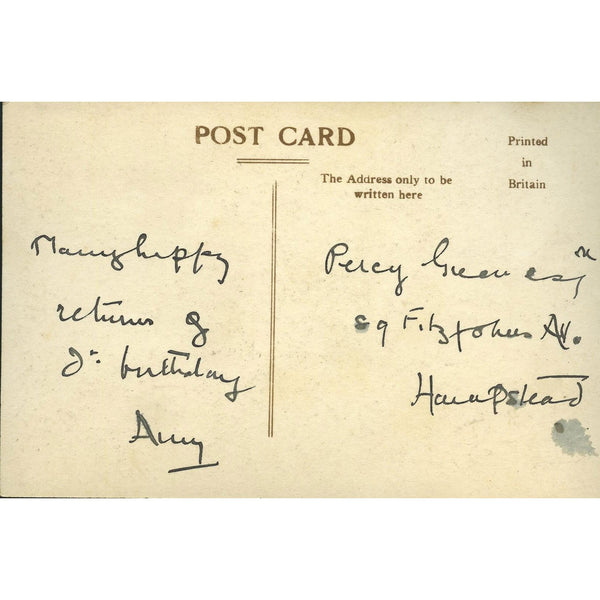 POST CARD
The Address only to be
written here
Printed
in
Britain
Many happy
returns of
yr birthday
Amy
Percy Green esq
59 Fitzjohns Av.
Hampstead